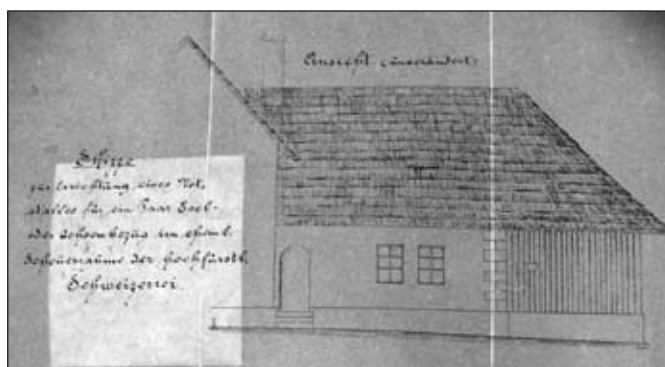 Ansicht (unverändert)
Skizze
zur Errichtung eines Not-
stalles für ein Paar Esel-
oder Ochsenbezug im ehem.
Scheuerraume der hochfürstl.
Schweizerei.